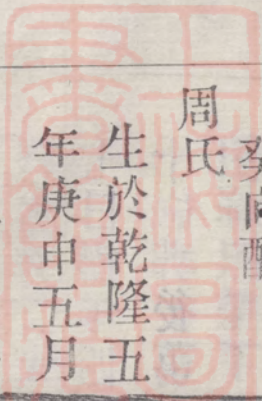 癸向酉
周氏
生於乾隆五
年庚申五月